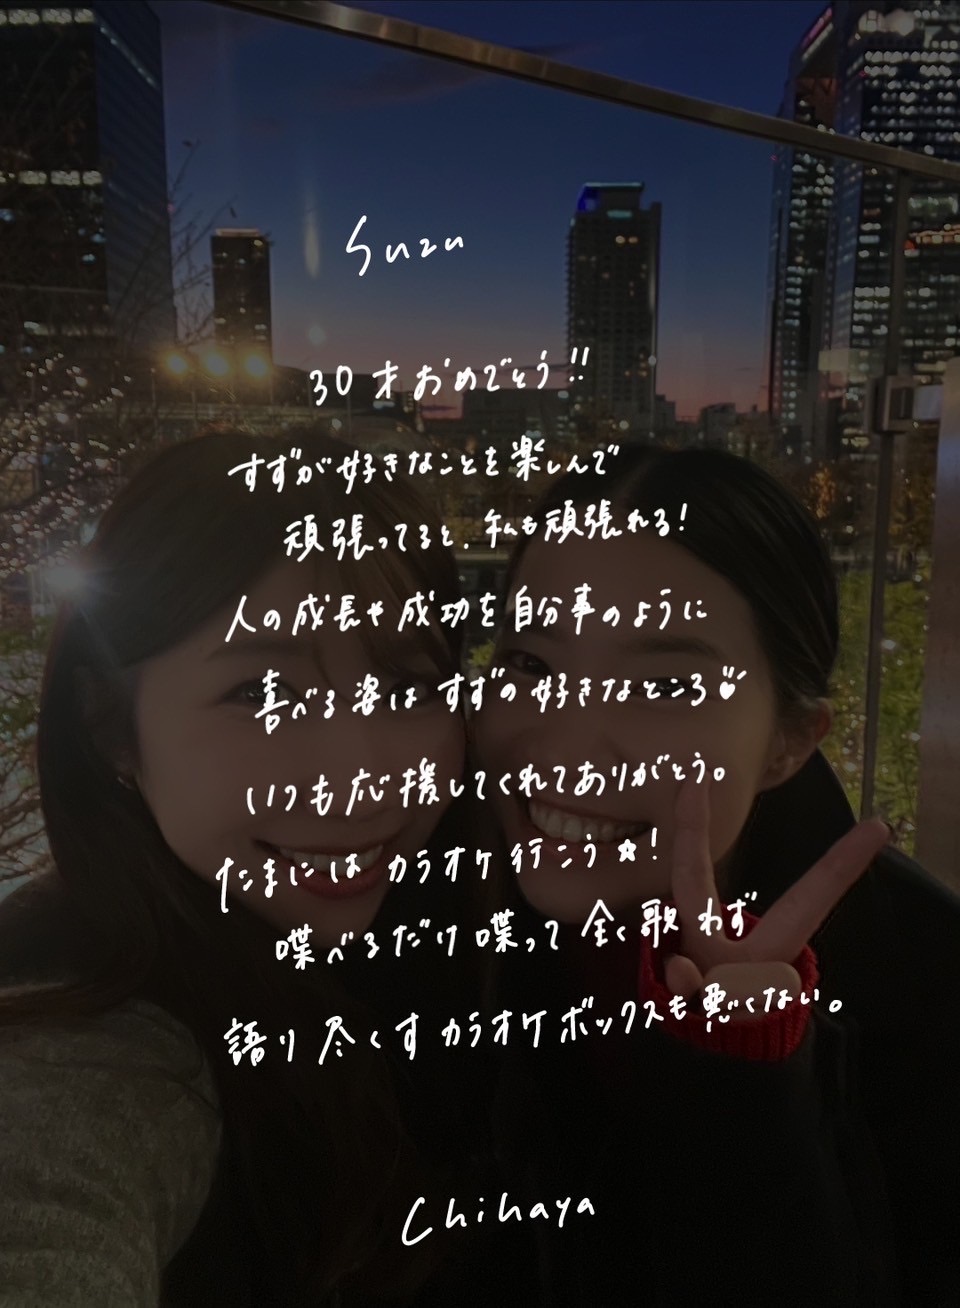 Suzu
30才おめでとう!!
すずが好きなことを楽しんで
頑張ってると、私も頑張れる!
人の成長や成功を自分事のように
喜べる姿はすずの好きなところ
いつも応援してくれてありがとう。
たまにはカラオケ行こう☆!
喋べるだけ喋って全く歌わず
語り尽くすカラオケボックスも悪くない。
Chihaya